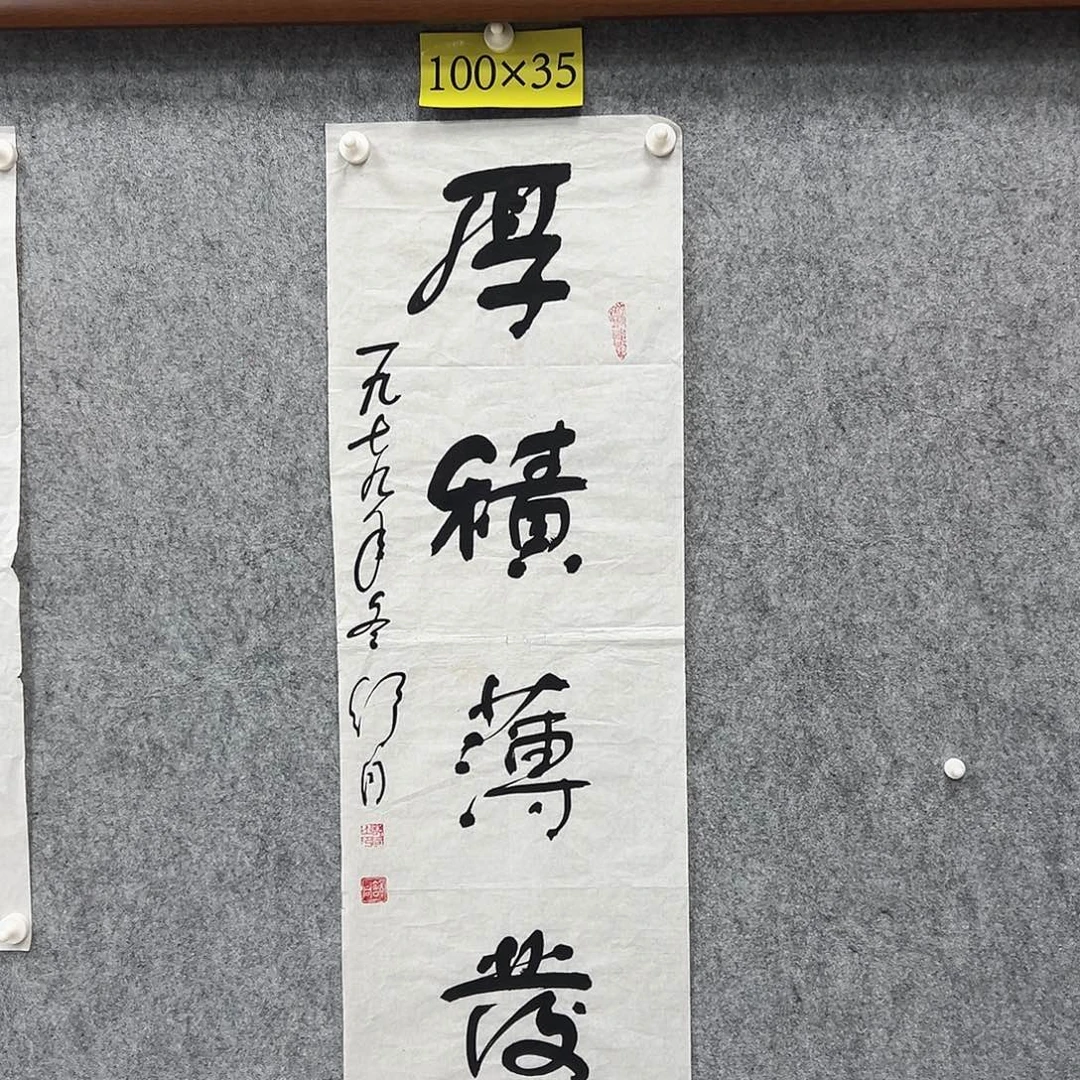 100×35
厚積薄發
一九七九年冬